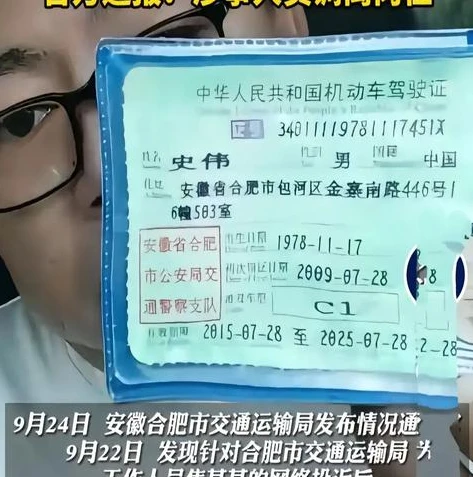 中华人民共和国机动车驾驶证
证号 34011119781117451X
姓名 史伟 性别 男 国籍 中国
住址 安徽省合肥市包河区金寨南路446号1
6幢503室
安徽省合肥
市公安局交
通警察支队
出生日期 1978-11-17
初次领证日期 2009-07-28
准驾车型 C1
有效期限 2015-07-28 至 2025-07-28
9月24日 安徽合肥市交通运输局发布情况通
9月22日 发现针对合肥市交通运输局